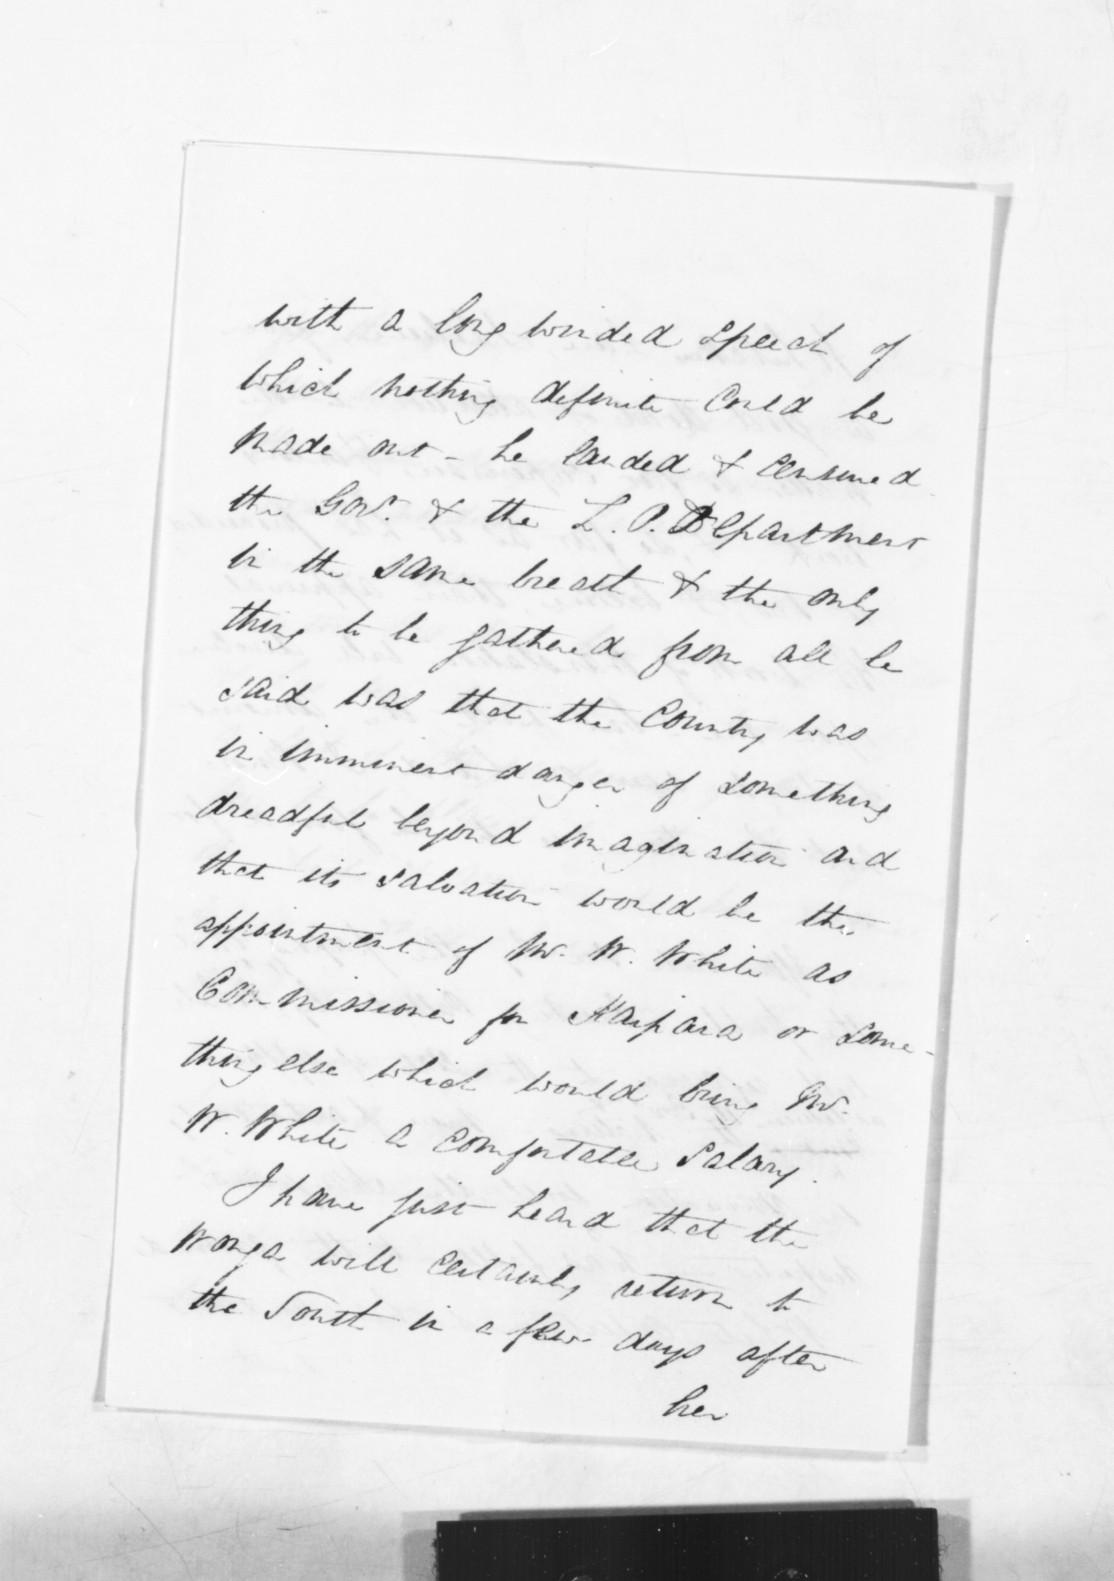 with a long winded speech of
which nothing definite could be
made out - he lauded & censured
the Govt. & the L. P. Department
in the same breath & the only
thing to be gathered from all he
said was that the Country was
in imminent danger of something
dreadful beyond imagination and
that its salvation would be the
appointment of Mr. W. White as
Commissioner for Kaipara or some-
thing else which would bring Mr.
W. White a comfortable salary.
I have just heard that the
Wonga will certainly return to
the South in a few days after
her